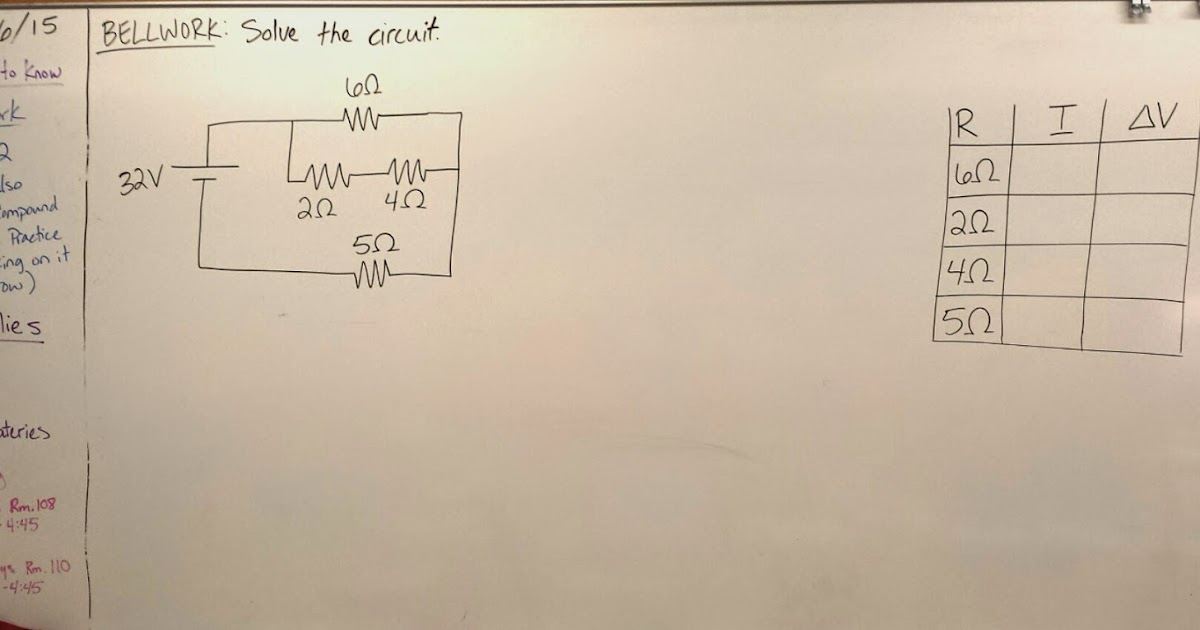 6/15
to know
rk
2
lso
ompound
Practice
ing on it
ow)
lies
ateries
Rm. 108
- 4:45
ys Rm. 110
-4:45
BELLWORK: Solve the circuit.
6Ω
32V
2Ω 4Ω
5Ω
R I ΔV
6Ω
2Ω
4Ω
5Ω